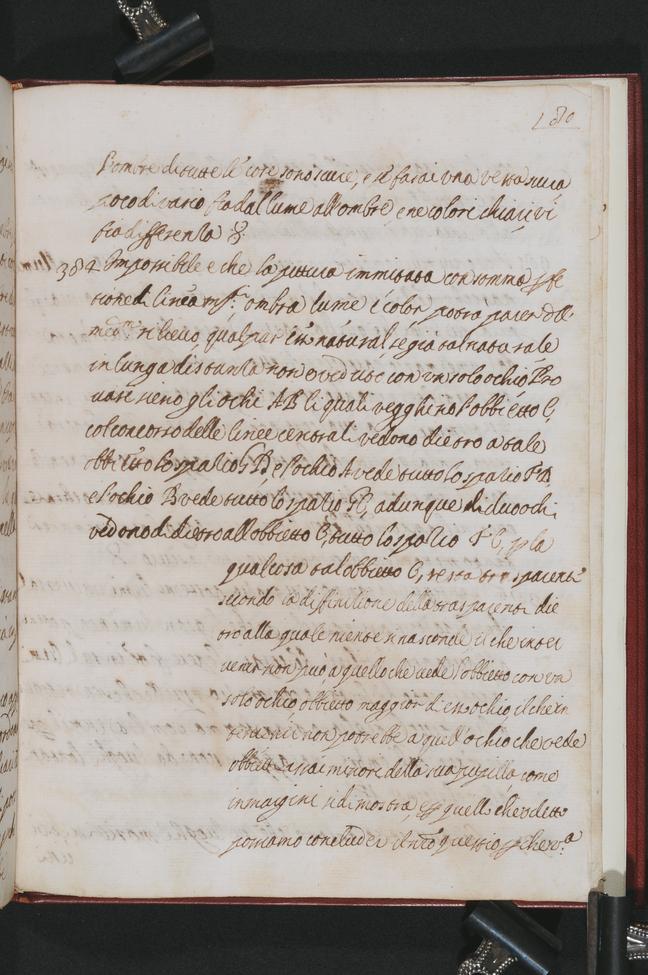 180
l'ombre di tutte le cose sono scure, e se farai una vesta scura
poco divario fia dal lume all'ombre, e ne colori chiari vi
fia differenza
384 Impossibile e che la pittura immitata con somma
tione di linea ombra lume e color possa parer del
med.mo rilievo, qual par esso natural se gia tal naturale
in lunga distanza non e veduto con un solo ochio Pro
vasi sieno gli ochi AB li quali vegghino l'obbietto C,
col concorso delle linee centrali vedono dietro a tale
obbietto lo spatio GD, e l'ochio A vede tutto lo spatio FD,
e l'ochio B vede tutto lo spatio GE, adunque di duo ochi
vedono di dietro all'obbietto C, tutto lo spatio FE, p la
qual cosa tal obbietto C, resta trasparente
secondo la diffinitione della trasparenti die
tro alla quale niente si nasconde il che intri
venir non può a quello che vede l'obbietto con un
solo ochio obbietto maggior di esso ochio il che in
non potrebbe a quell'ochio che vede
obbietti assai minori della sua pupilla come
in margini si dimostra, e p quello che e detto
possiamo concluder il nro quessito p che